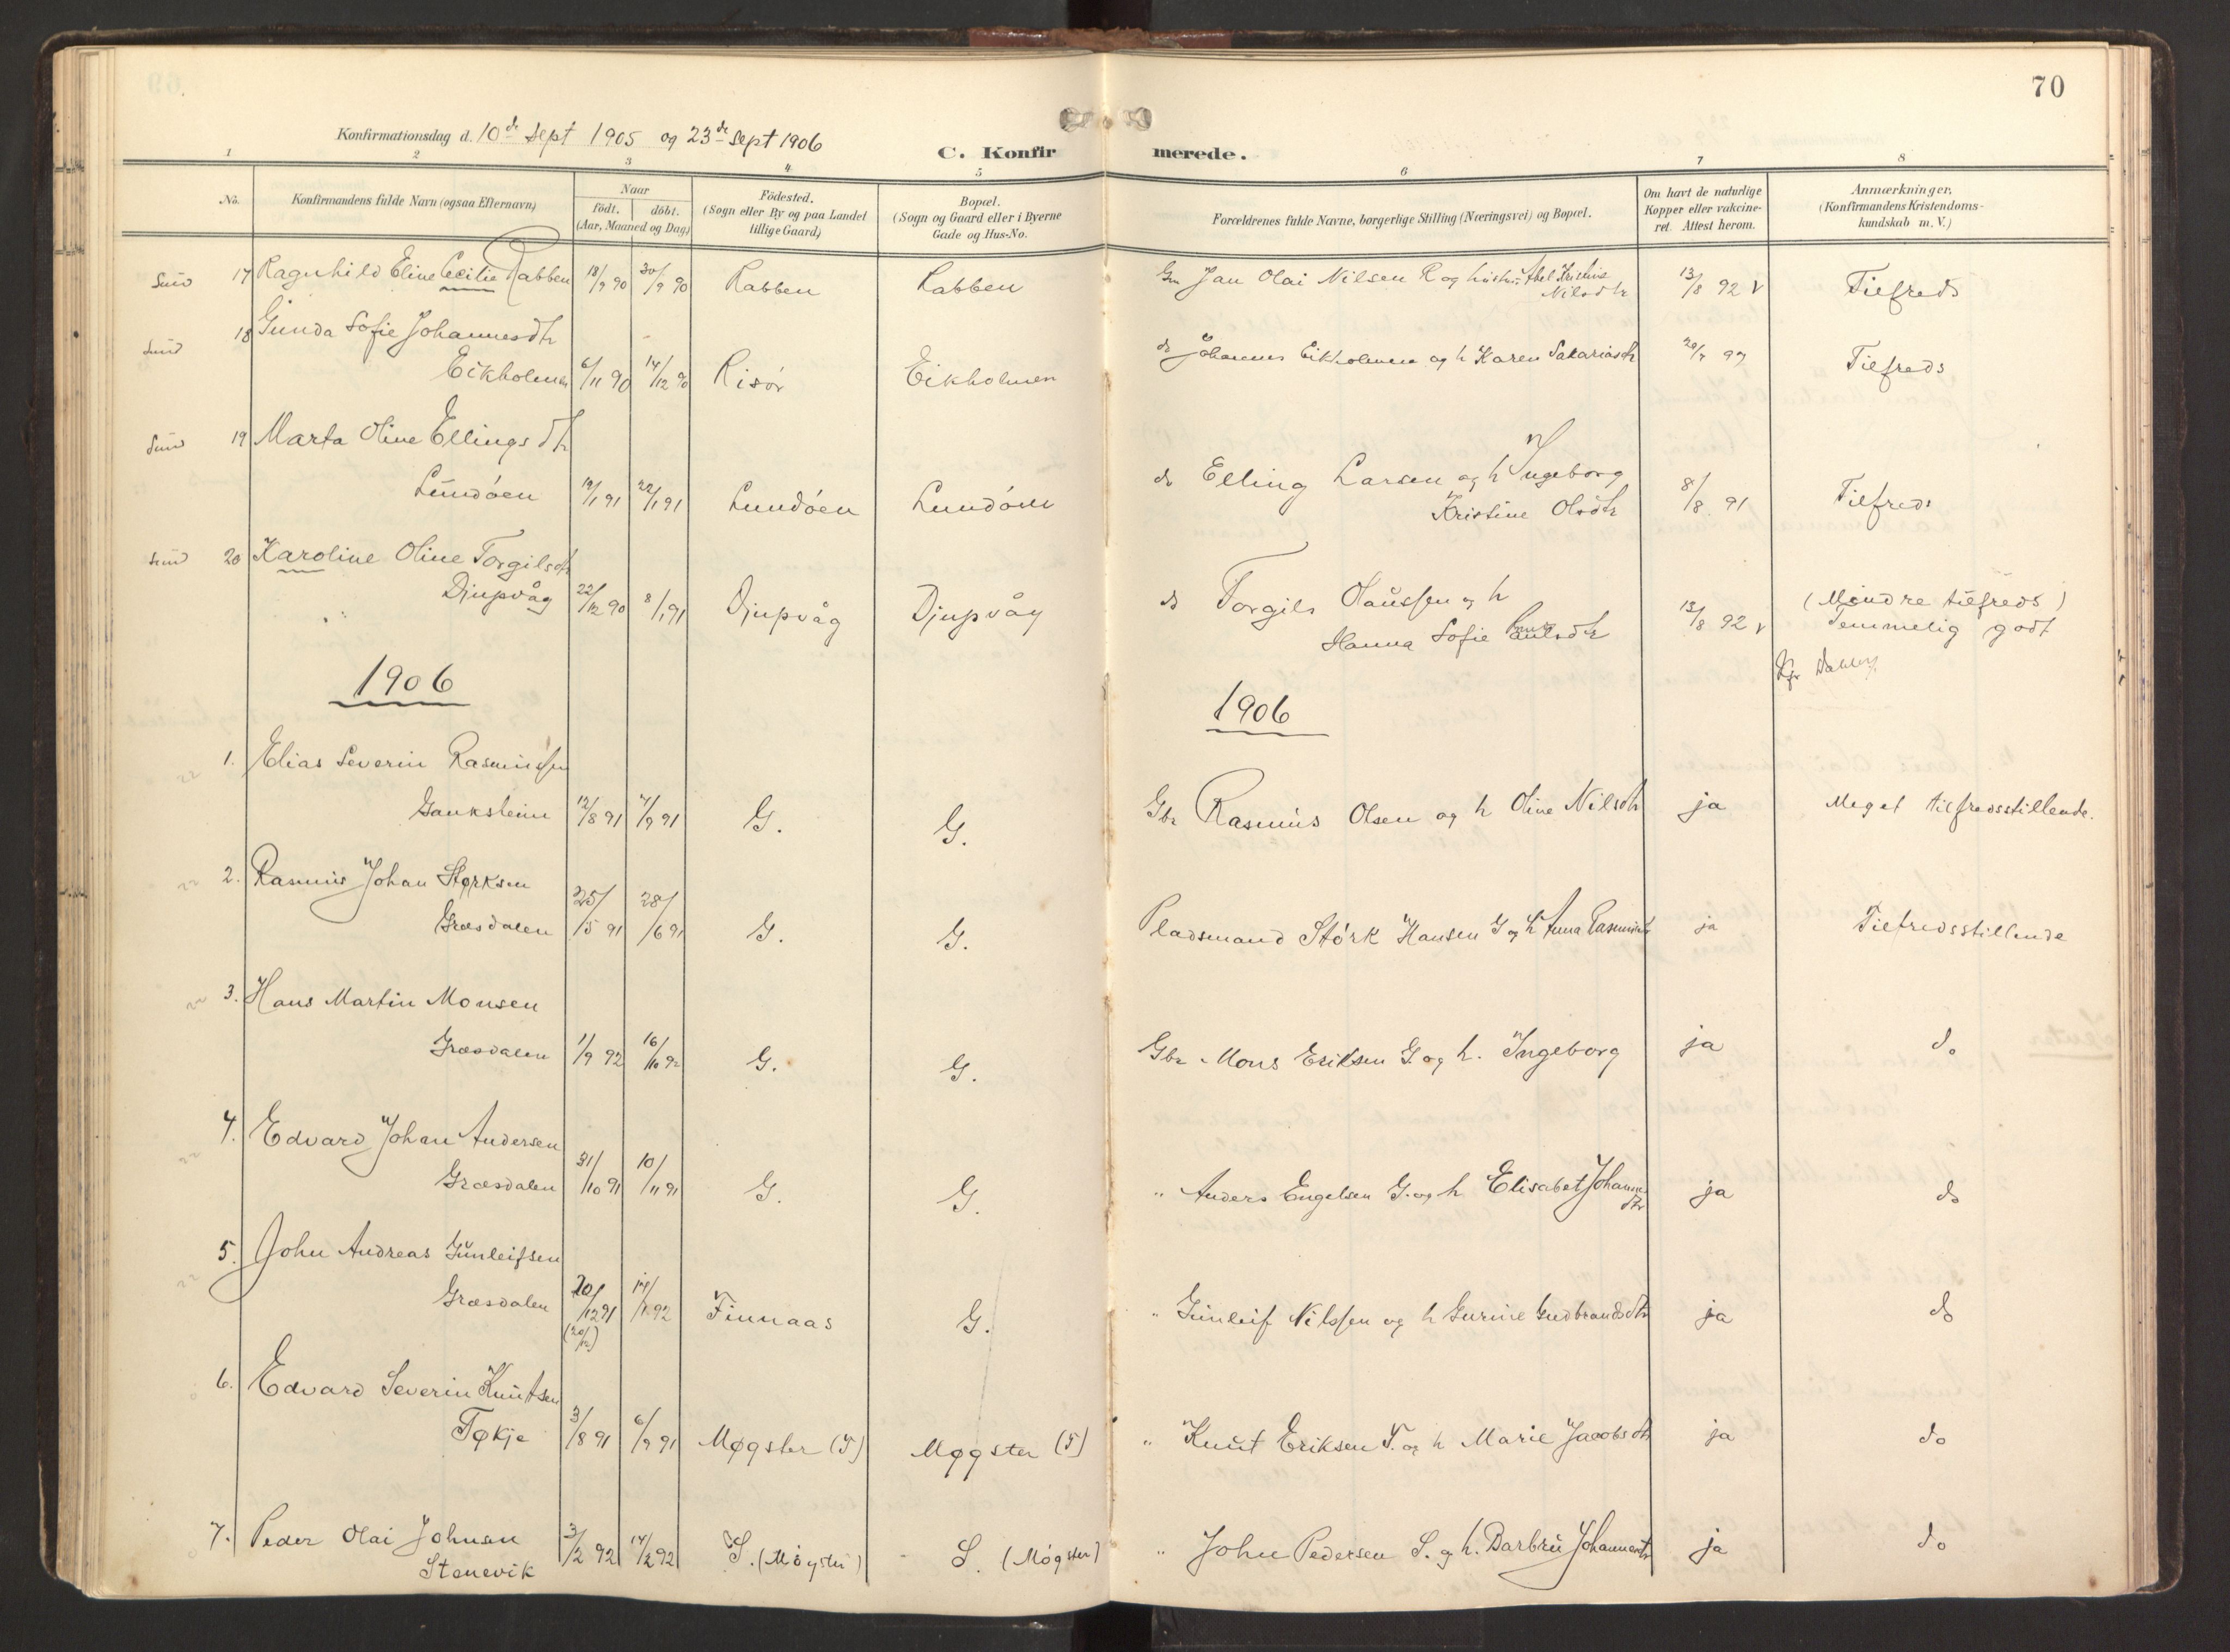 70
Konfirmationsdag d. 10de Sept 1905 og 23de Sept 1906
C. Konfirmerede.
1 2 3 4 5 6 7 8
No.
Konfirmandens fulde Navn (ogsaa Efternavn)
Naar
födt. döbt.
(Aar, Maaned og Dag)
Födested.
(Sogn eller By og paa Landet
tillige Gaard)
Bopæl.
(Sogn og Gaard eller i Byerne
Gade og Hus-No.
Forældrenes fulde Navne, borgerlige Stilling (Næringsvei) og Bopæl.
Om havt de naturlige
Kopper eller vakcine-
ret. Attest herom.
Anmærkninger,
(Konfirmandens Kristendoms-
kundskab m. V.)
Sund 17 Ragnhild Eline Cecilie Rabben 18/9 90 30/9 90 Rabben Rabben Gm Jan Olai Nilsen R og hustru Abel Kristine 13/8 92 v Tilfreds
Nilsdtr
Sund 18 Gunda Sofie Johannesdtr
Eikholmen 6/11 90 14/12 90 Risør Eikholmen do Johannes Eikholmen og h Karen Sakariasdtr Tilfreds
Sund 19 Marta Oline Ellingsdtr
Lundøen 19/1 91 22/1 91 Lundøen Lundøen do Elling Larsen og h Ingeborg 8/8 91 Tilfreds
Kristine Olsdtr
Sund 20 Karoline Oline Torgilsdtr
Djupvåg 22/12 90 8/1 91 Djupvåg Djupvåg do Torgils Olaussen og h 13/8 92 v (Mindre tilfreds)
Hanna Sofie Temmelig godt
1906
1906
1. Elias Severin Rasmussen
Gauksheim 12/8 91 7/9 91 G. G. Gbr Rasmus Olsen og h Oline Nilsdtr ja Meget tilfredsstillende.
2. Rasmus Johan Størksen
Græsdalen 25/5 91 28/6 91 G. G. Pladsmand Størk Hansen G og h Anna Rasmusdtr ja Tilfredsstillende
3. Hans Martin Monsen
Græsdalen 1/9 92 16/10 92 G. G. Gbr Mons Eriksen G. og h. Ingeborg ja do
4. Edvard Johan Andersen
Græsdalen 31/10 91 10/11 91 G. G. " Anders Engelsen G. og h Elisabet Johannes ja do
dtr
5. John Andreas Gunleifsen
Græsdalen 20/12 91 17/1 92 Finnaas G. " Gunleif Nilssen og h Gurine Gudbrandsdtr ja do
(20/12)
6. Edvard Severin Knutsen
Tøkje 3/8 91 6/9 91 Møgster (T) Møgster (T) " Knut Eriksen T. og h Marie Jacobsdtr ja do
7. Peder Olai Johnsen 3/2 92 14/2 92 S. (Møgster) S. (Møgster) " John Pedersen S. og h. Barbru Johannesdtr ja do
Stenevik